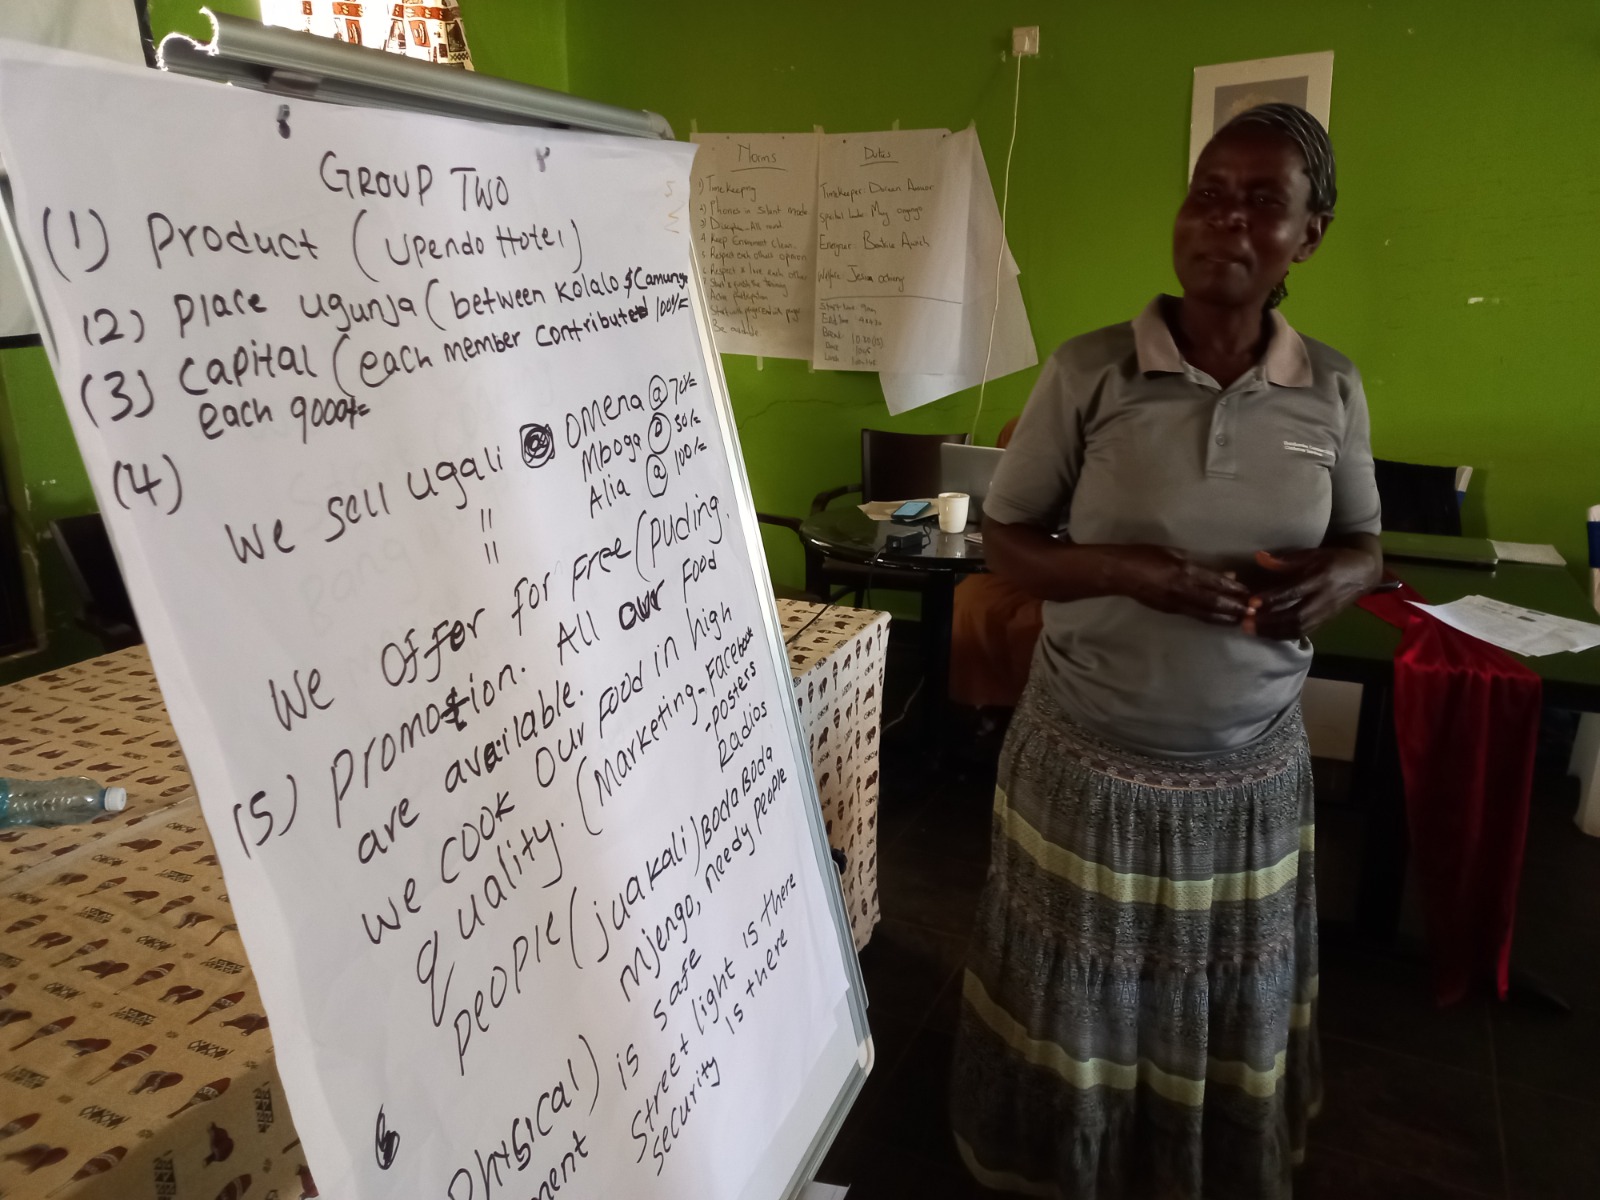 GROUP TWO
(1) Product (Upendo Hotel)
(2) Place Ugunja (between Kolalo & Camunge
(3) Capital (each member contributed 100/=
each 9000/=
(4)
We sell ugali @ OMENA @ 70/=
" Mboga @ 50/=
" Alia @ 100/=
We Offer for Free (puding.
(5) Promotion. All our Food
are available.
We COOK Our Food in high
quality. (Marketing - Facebook
- Posters
Radios
people (juakali) BodaBoda
Mjengo, needy people
6 physical) is safe
ment Street light is there
security is there
Norms
1) Time keeping
2) Phones in silent mode
3) Discipline - All round
4. Keep Enviroment clean
5. Respect each others opinion
6. Respect & love each other
Active Participation
Be
Duties
Timekeeper: Doreen
Spiritual Leader: Mary
Energizer: Beatrice
Welfare:
Start time: 9am
End time:
Break
Lunch